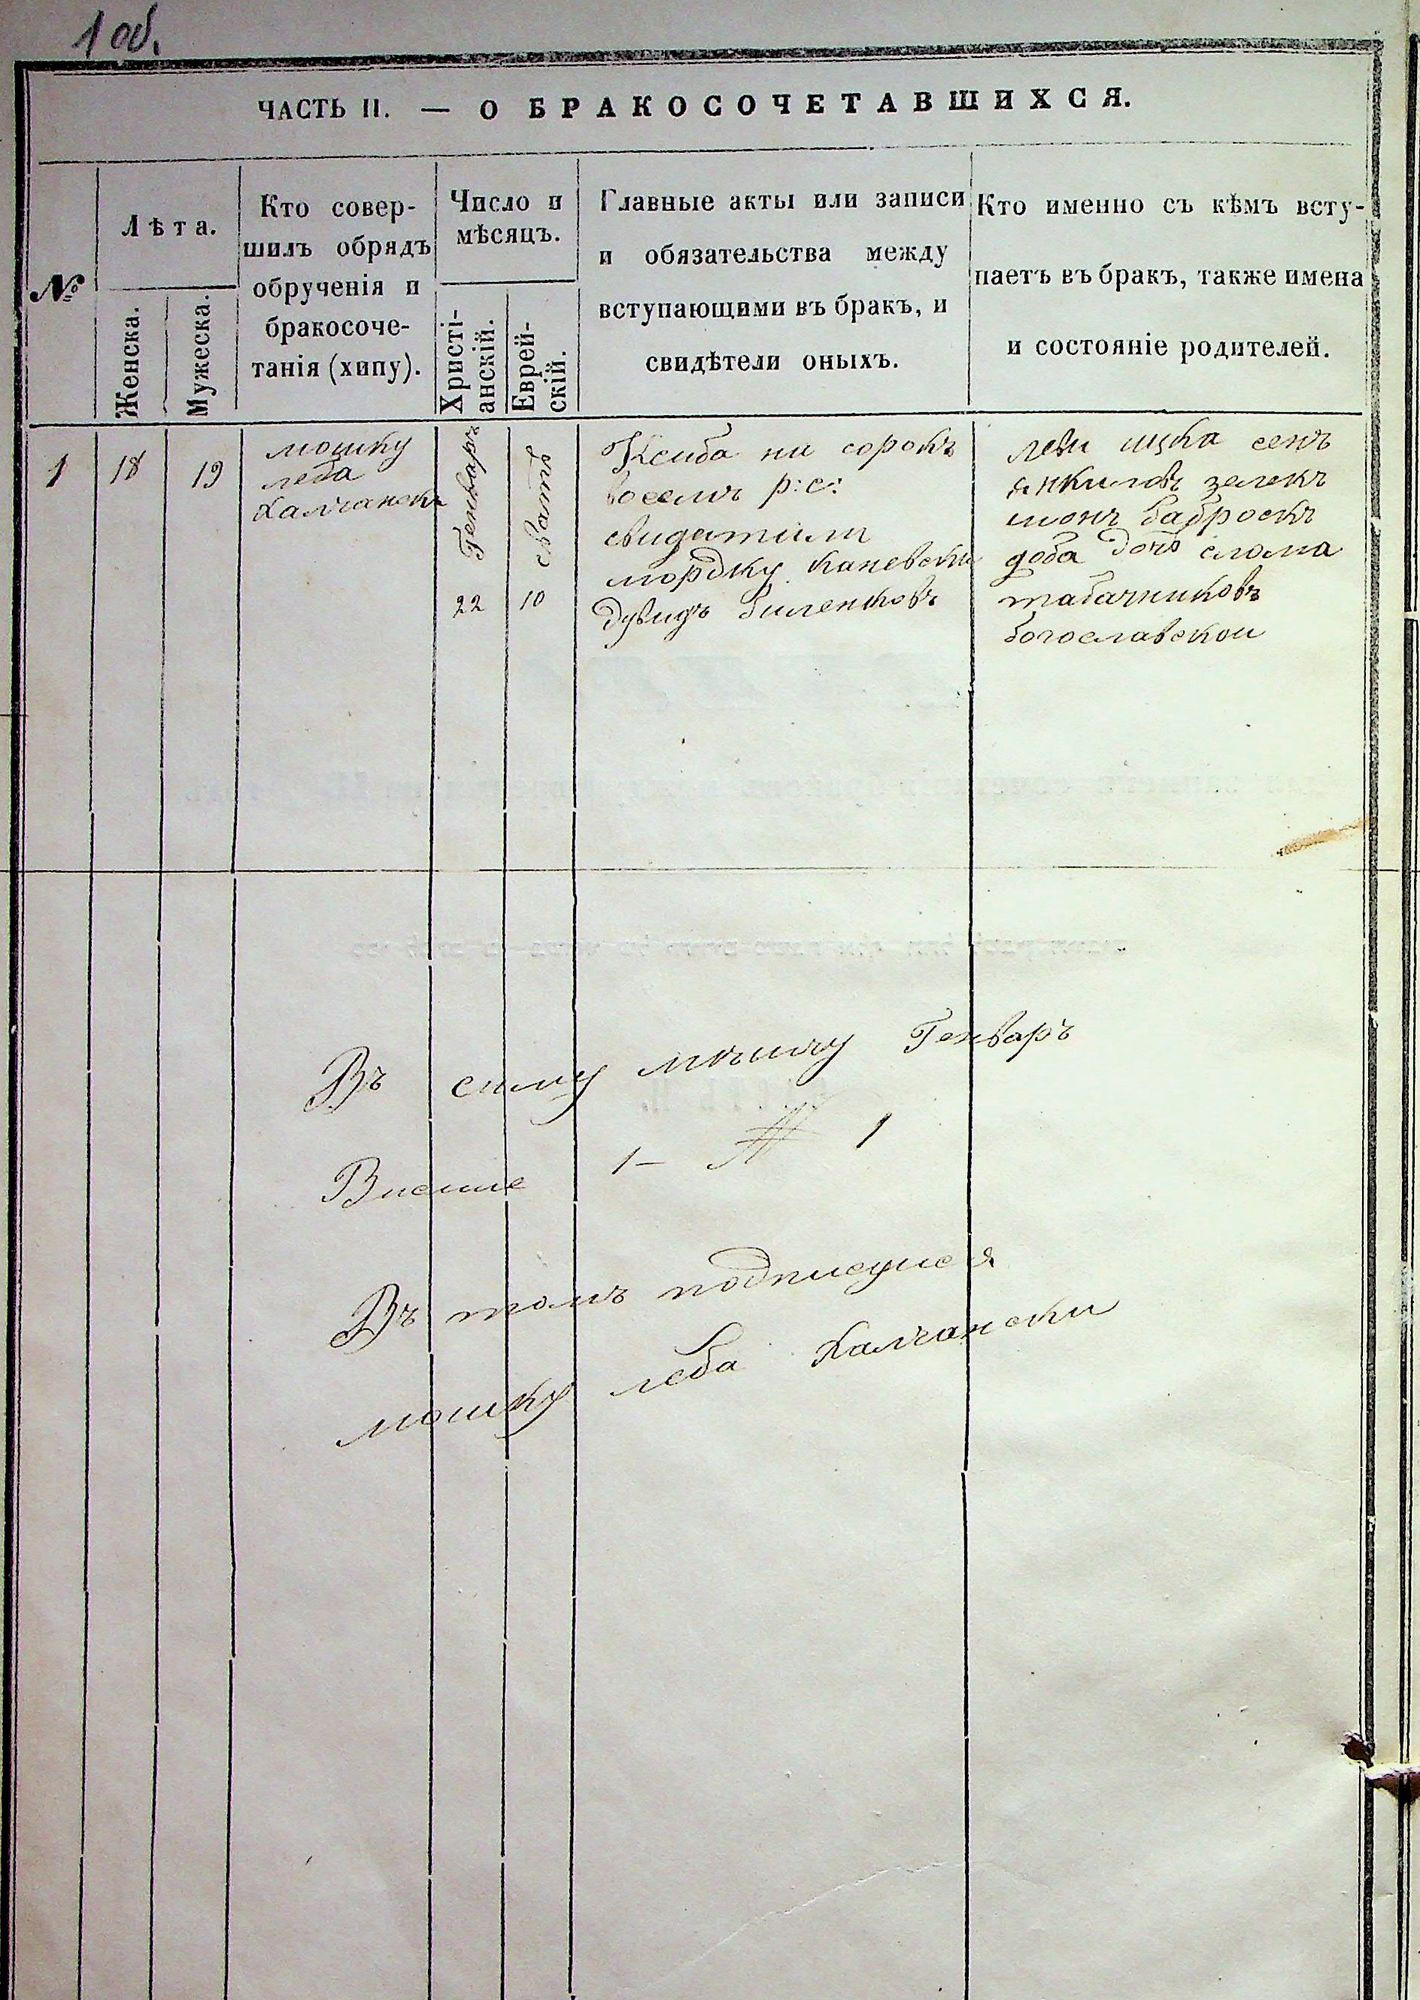 1 об.
ЧАСТЬ II. — О БРАКОСОЧЕТАВШИХСЯ.
№
Лѣта.
Женска.
Мужеска.
Кто совер-
шилъ обрядъ
обрученія и
бракосоче-
танія (хипу).
Число и
мѣсяцъ.
Христі-
анскій.
Еврей-
скій.
Главные акты или записи
и обязательства между
вступающими въ бракъ, и
свидѣтели оныхъ.
Кто именно съ кѣмъ всту-
паетъ въ бракъ, также имена
и состояніе родителей.
1
18
19
мошку
леба
Халчанскъ
Генваръ
22
10
Ксиба на сорокъ
восемъ р: с:
свидатили
мордку каневски
Дувидъ Биленковъ
леви ицка сенъ
янкиловъ
доба дочъ слома
табачниковъ
богославскои
Въ силу Генваръ
1 — № 1
Въ томъ подписуися
мошку леба Халчански